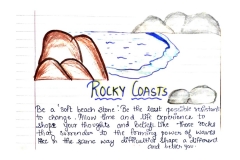 ROCKY COASTS
Be a "soft beach stone". Be the least possible resistant
to change. Allow time and life experience to
shape your thoughts and beliefs like those rocks
that surrender to the forming power of waves
in the same way difficulties shape a different
and better you